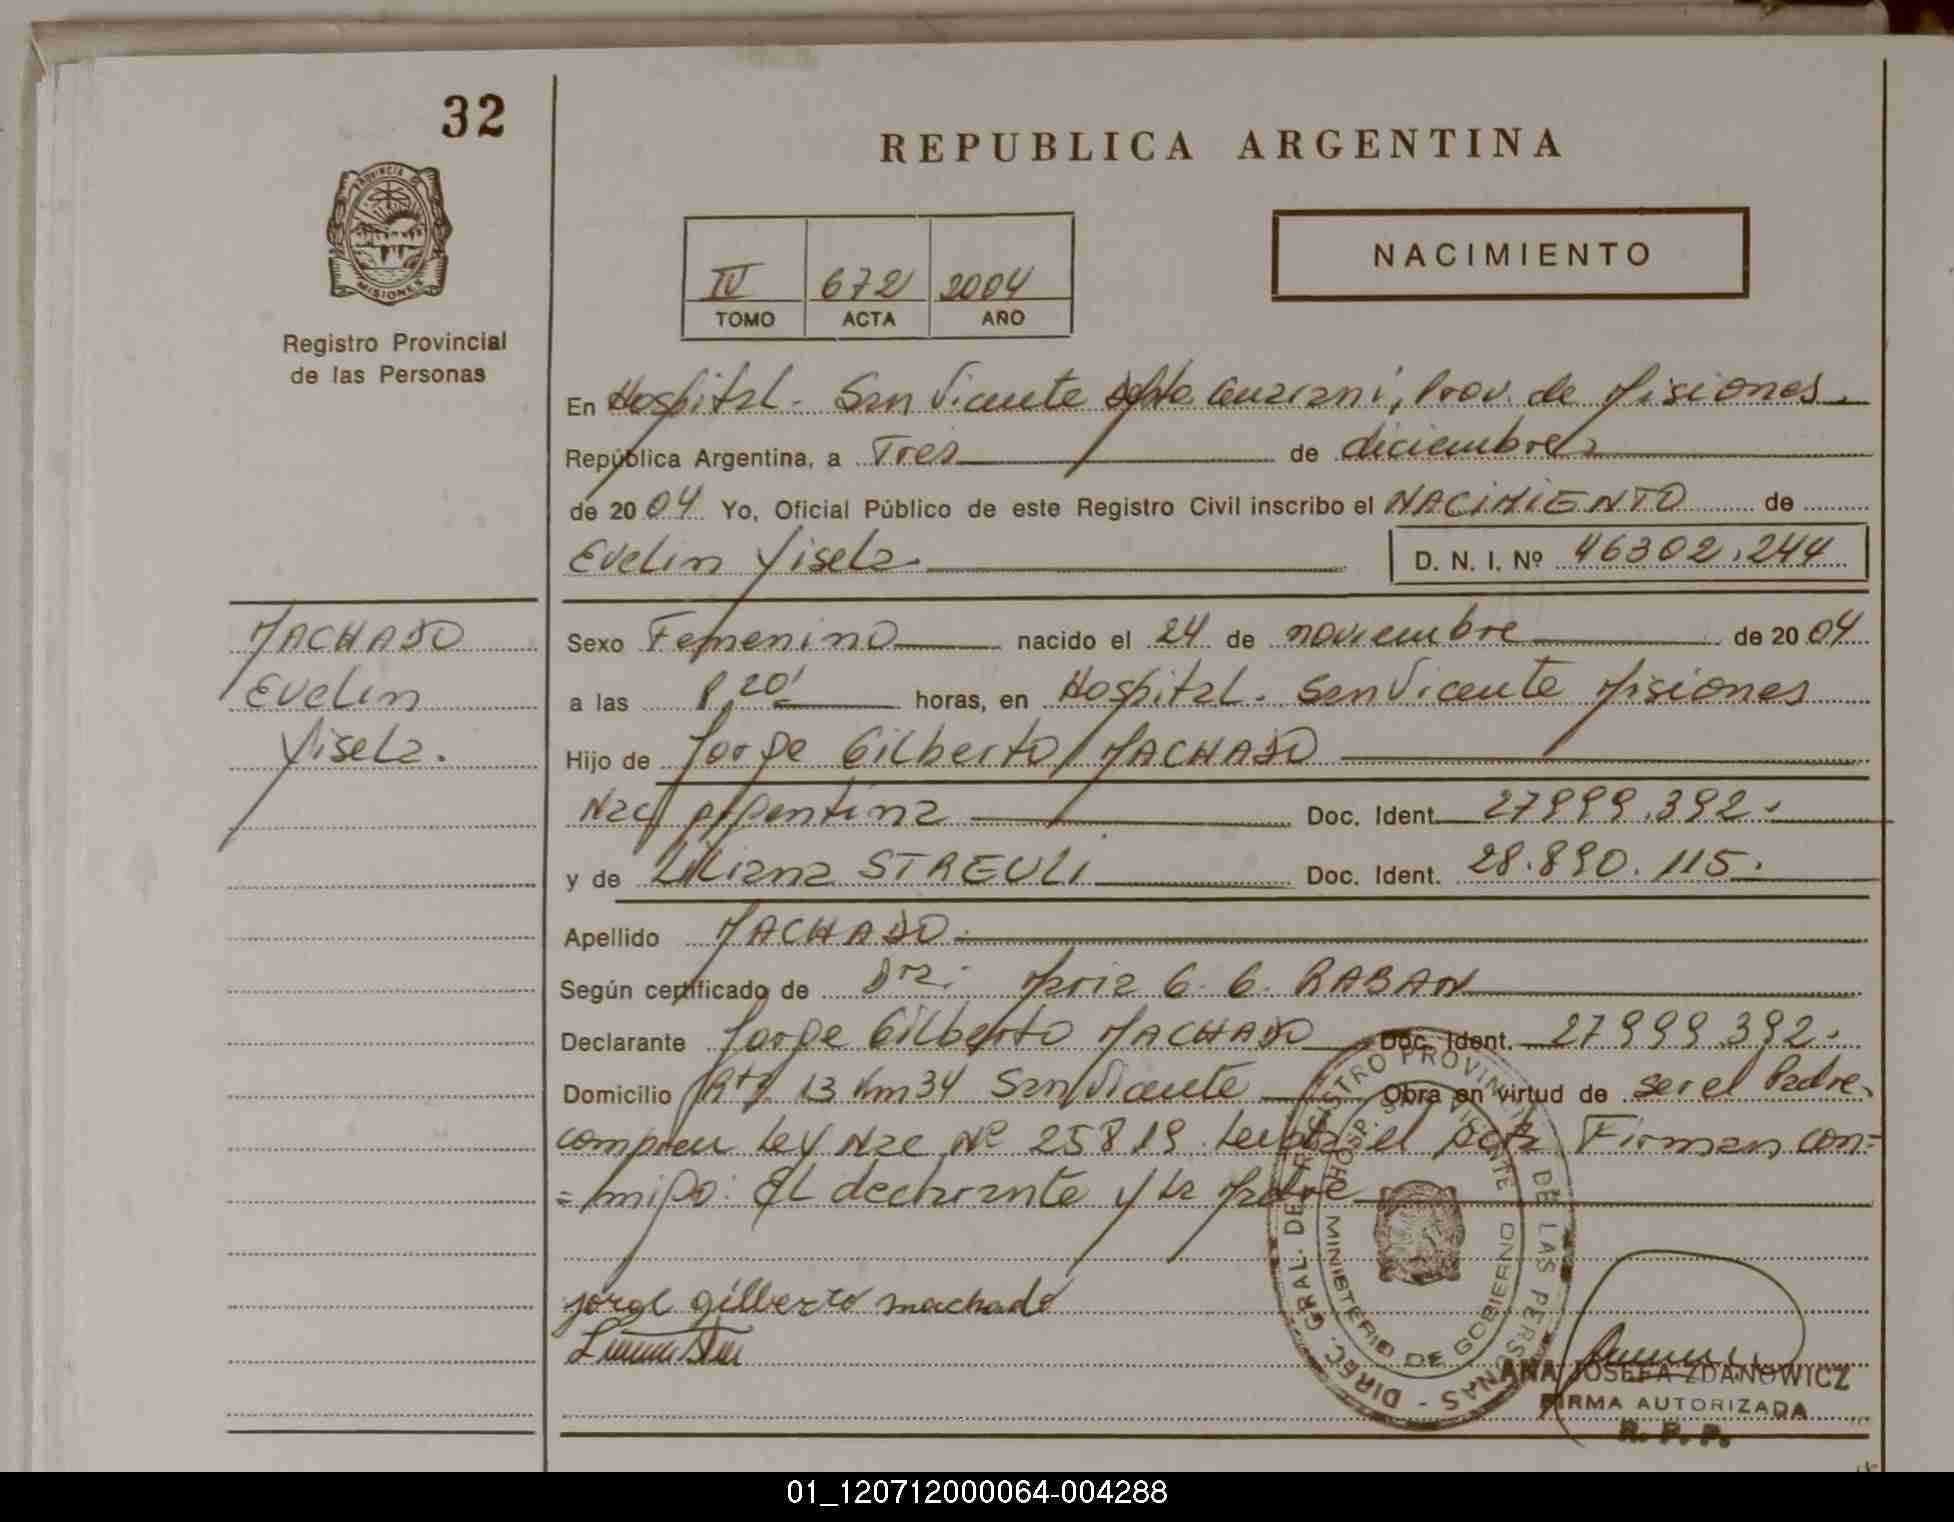 32
REPUBLICA ARGENTINA
PROVINCIA DE
MISIONES
NACIMIENTO
IV 672 2004
TOMO ACTA AÑO
Registro Provincial
de las Personas
En Hospital - San Vicente Guarani, Prov. de Misiones.
República Argentina, a Tres de diciembre
de 2004 Yo, Oficial Público de este Registro Civil inscribo el NACIMIENTO de
Evelin Yisela D. N. I. Nº 46302.244
MACHADO
Evelin
Yisela.
Sexo Femenino nacido el 24 de noviembre de 2004
a las 8,20' horas, en Hospital - San Vicente Misiones
Hijo de Jorge Gilberto MACHADO
Nac argentina Doc. Ident. 27999.392.
y de Liliana STREULI Doc. Ident. 28.890.115.
Apellido MACHADO.
Según certificado de Dra: G. G. RABAN
Declarante Jorge Gilberto MACHADO Doc. Ident. 27999.392.
Domicilio Rta 13 Km 34 San Vicente Obra en virtud de ser el Padre.
Ley Nac Nº 25819. el acta Firman con=
=migo: El declarante y la Madre
jorge gilberto machado
DIREC. GRAL. DE REGISTRO PROVINCIAL DE LAS PERSONAS -
HOSP. SAN VICENTE
MINISTERIO DE GOBIERNO
ANA JOSEFA ZDANOWICZ
FIRMA AUTORIZADA
R. P. P.
01_120712000064-004288